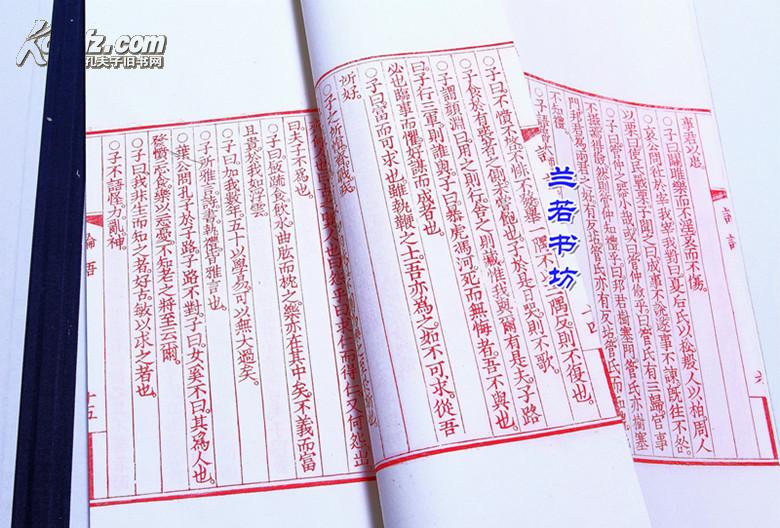 Kongfz.com
孔夫子旧书网
兰若书坊
事君以忠。
○子曰關雎樂而不淫哀而不傷。
○哀公問社於宰我宰我對曰夏后氏以松殷人以柏周人
以栗曰使民戰栗子聞之曰成事不說遂事不諫既往不咎。
○子曰管仲之器小哉或曰管仲儉乎曰管氏有三歸官事
不攝焉得儉然則管仲知禮乎曰邦君樹塞門管氏亦樹塞
門邦君為兩君之好有反坫管氏亦有反坫管氏而知
不知禮。
六
○子曰不憤不啓不悱不發舉一隅不以三隅反則不復也。
○子食於有喪者之側未嘗飽也。子於是日哭則不歌。
○子謂顏淵曰用之則行舍之則藏惟我與爾有是夫子路
曰子行三軍則誰與子曰暴虎馮河死而無悔者吾不與也。
必也臨事而懼好謀而成者也。
○子曰富而可求也雖執鞭之士吾亦為之如不可求從吾
所好。
○子之所慎齊戰疾
求仁而得仁又何怨出
曰夫子不為也。
○子曰飯疏食飲水曲肱而枕之樂亦在其中矣不義而富
且貴於我如浮雲
○子曰加我數年五十以學易可以無大過矣。
○子所雅言詩書執禮皆雅言也。
○葉公問孔子於子路子路不對子曰女奚不曰其為人也
發憤忘食樂以忘憂不知老之將至云爾。
○子曰我非生而知之者好古敏以求之者也。
○子不語怪力亂神。
論語
十五